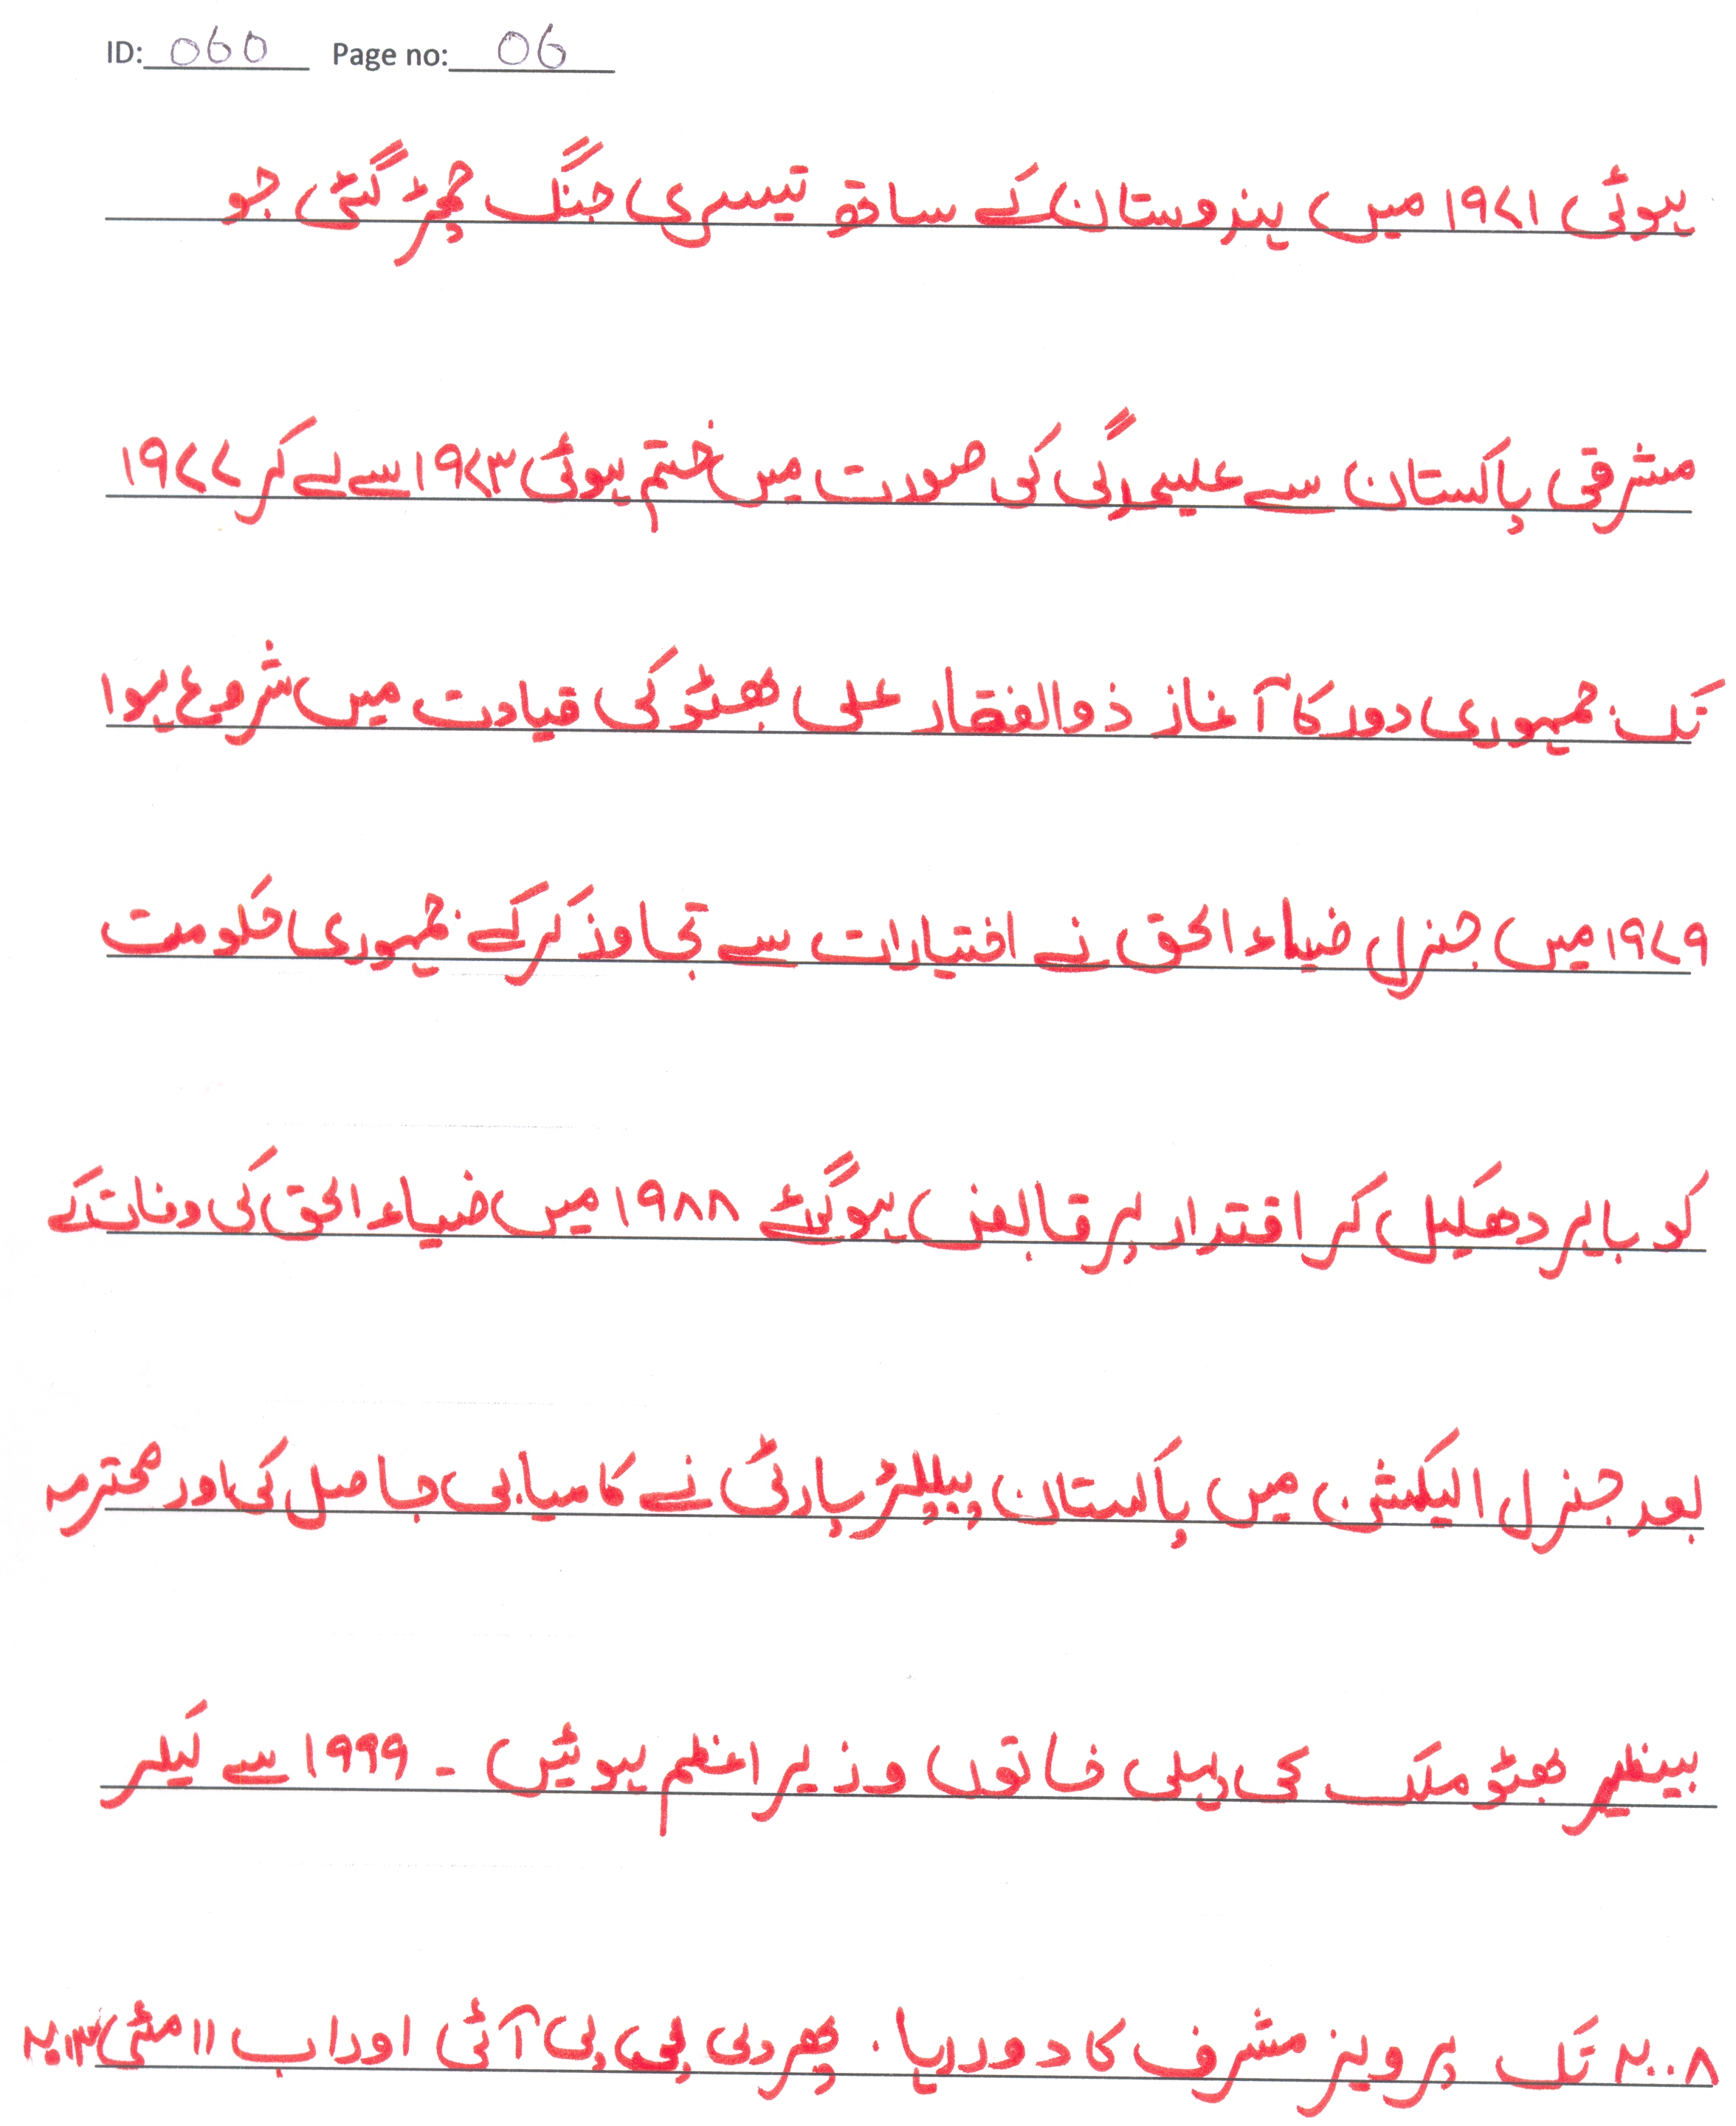 ID: 060 Page no: 06
ہوئی ۱۹۷۱ میں ہندوستان کے ساتھ تیسری جنگ چھڑ گئی جو
مشرقی پاکستان سے علیحدگی کی صورت میں ختم ہوئی ۱۹۷۳ سے لے کر ۱۹۷۷
تک جمہوری دور کا آغاز ذوالفقار علی بھٹو کی قیادت میں شروع ہوا
۱۹۷۹ میں جنرل ضیاء الحق نے اختیارات سے تجاوز کر کے جمہوری حکومت
کو باہر دھکیل کر اقتدار پر قابض ہو گئے ۱۹۸۸ میں ضیاء الحق کی وفات کے
بعد جنرل الیکشن میں پاکستان پیپلز پارٹی نے کامیابی حاصل کی اور محترمہ
بینظیر بھٹو ملک کی پہلی خاتون وزیر اعظم ہوئیں ۔ ۱۹۹۹ سے لیکر
۲۰۰۸ تک پرویز مشرف کا دور رہا . پھر دی پی پی آئی اور اب ۱۱ مئی ۲۰۱۳